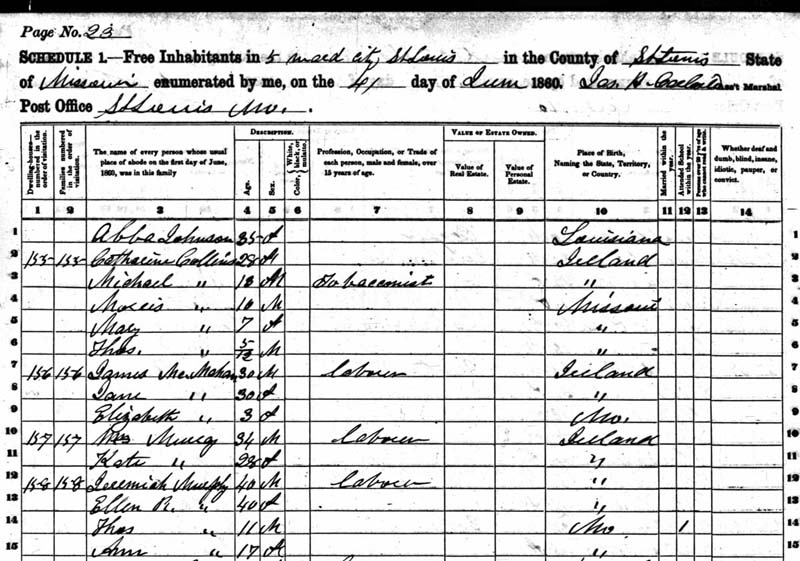 Page No. 23
SCHEDULE 1.—Free Inhabitants in 5 ward city, St Louis in the County of St Louis State
of Missouri enumerated by me, on the 4 day of June 1860. Jas. Ass't Marshal
Post Office St Louis Mo.
Dwelling-houses—numbered in the order of visitation. Families numbered in the order of visitation. The name of every person whose usual place of abode on the first day of June, 1860, was in this family DESCRIPTION. Age. Sex. Color, White, black, or mulatto. Profession, Occupation, or Trade of each person, male and female, over 15 years of age. VALUE OF ESTATE OWNED. Value of Real Estate. Value of Personal Estate. Place of Birth, Naming the State, Territory, or Country. Married within the year. Attended School within the year. Persons over 20 y'rs of age who cannot read & write. Whether deaf and dumb, blind, insane, idiotic, pauper, or convict.
1 2 3 4 5 6 7 8 9 10 11 12 13 14
1 Abba Johnson 35 f Louisiana 1
2 155 155 Catharine Collins 28 Ireland 2
3 Michael " 18 M Tobacconist " 3
4 Morris " 10 M Missouri 4
5 Mary " 7 f " 5
6 Thos. " 5/12 M " 6
7 156 156 James McMahan 30 M labourer Ireland 7
8 Jane " 30 f " 8
9 Elizabeth " 3 f Mo. 9
10 157 157 34 M labourer Ireland 10
11 Kate " 28 f " 11
12 158 158 Jeremiah Murphy 40 M labourer " 12
13 Ellen R. " 40 f " 13
14 Thos " 11 M Mo 1 14
15 Ann " 17 f " 15